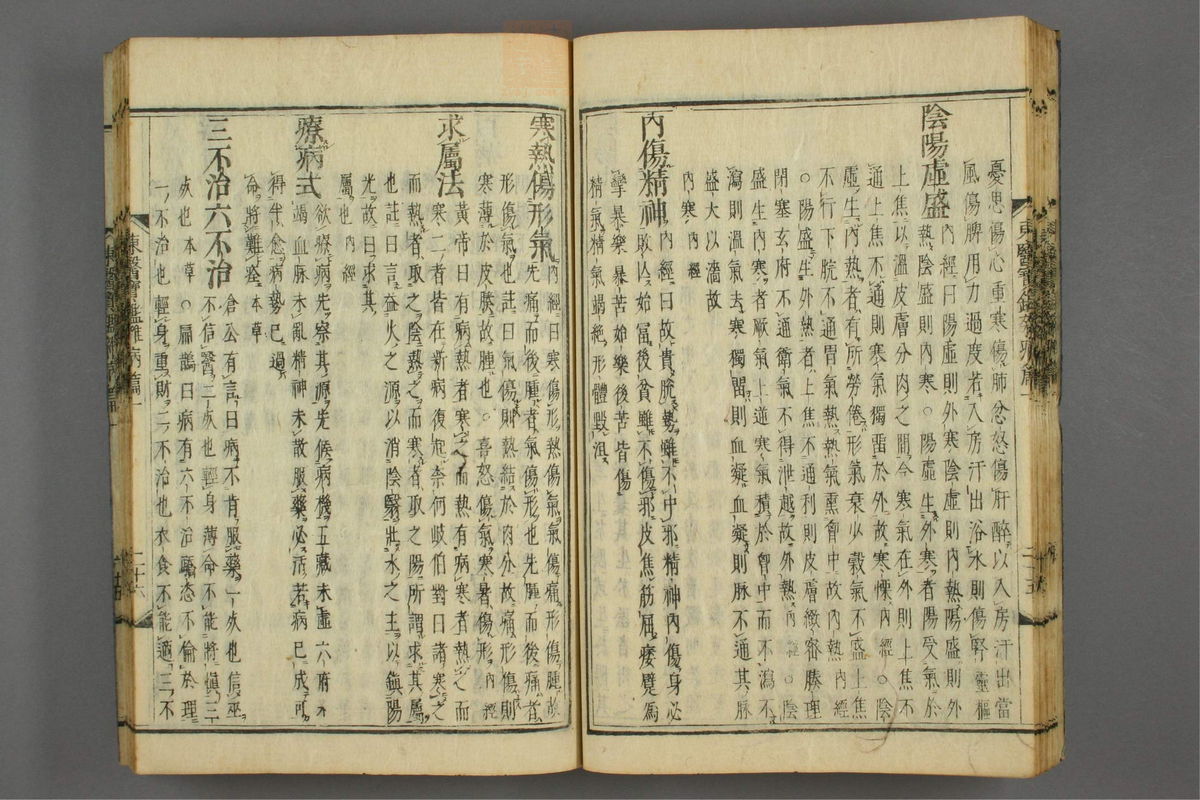 憂思傷心重寒傷肺忿怒傷肝醉以入房汗出當
風傷脾用力過度若入房汗出浴水則傷腎靈樞
陰陽虛盛
內經曰陽虛則外寒陰虛則內熱陽盛則外
熱陰盛則內寒○陽虛生外寒者陽受氣於
上焦以溫皮膚分肉之間今寒氣在外則上焦不
通上焦不通則寒氣獨留於外故寒慄內經○陰
虛生內熱者有所勞倦形氣衰少穀氣不盛上焦
不行下脘不通胃氣熱熱氣熏胷中故內熱內經
○陽盛生外熱者上焦不通利則皮膚緻密腠理
閉塞玄府不通衛氣不得泄越故外熱內經○陰
盛生內寒者厥氣上逆寒氣積於胷中而不瀉不
瀉則溫氣去寒獨留則血凝血凝則脉不通其脉
盛大以濇故
內寒內經
內傷精神
內經曰故貴脫勢雖不中邪精神內傷身必
敗亾始富後貧雖不傷邪皮焦筋屈痿躄爲
攣暴樂暴苦始樂後苦皆傷
精氣精氣竭絶形體毀沮
寒熱傷形氣
內經曰寒傷形熱傷氣氣傷痛形傷腫故
先痛而後腫者氣傷形也先腫而後痛者
形傷氣也註曰氣傷則熱結於肉分故痛形傷則
寒薄於皮腠故腫也○喜怒傷氣寒暑傷形內經
求屬法
黃帝曰有病熱者寒之而熱有病寒者熱之而
寒二者皆在新病復起奈何岐伯對曰諸寒之
而熱者取之陰熱之而寒者取之陽所謂求其屬
也註曰言益火之源以消陰翳壯水之主以鎭陽
光故曰求其
屬也內經
療病式
欲療病先察其源先候病機五藏未虛六府未
竭血脉未亂精神未散服藥必活若病已成可
得半愈病勢已過
命將難痊本草
三不治六不治
倉公有言曰病不肯服藥一死也信巫
不信醫二死也輕身薄命不能將愼三
死也本草○扁鵲曰病有六不治驕恣不倫於理
一不治也輕身重財二不治也衣食不能適三不
東醫寶鑑雜病篇一
二十五
東醫寶鑑雜病篇一
二十六